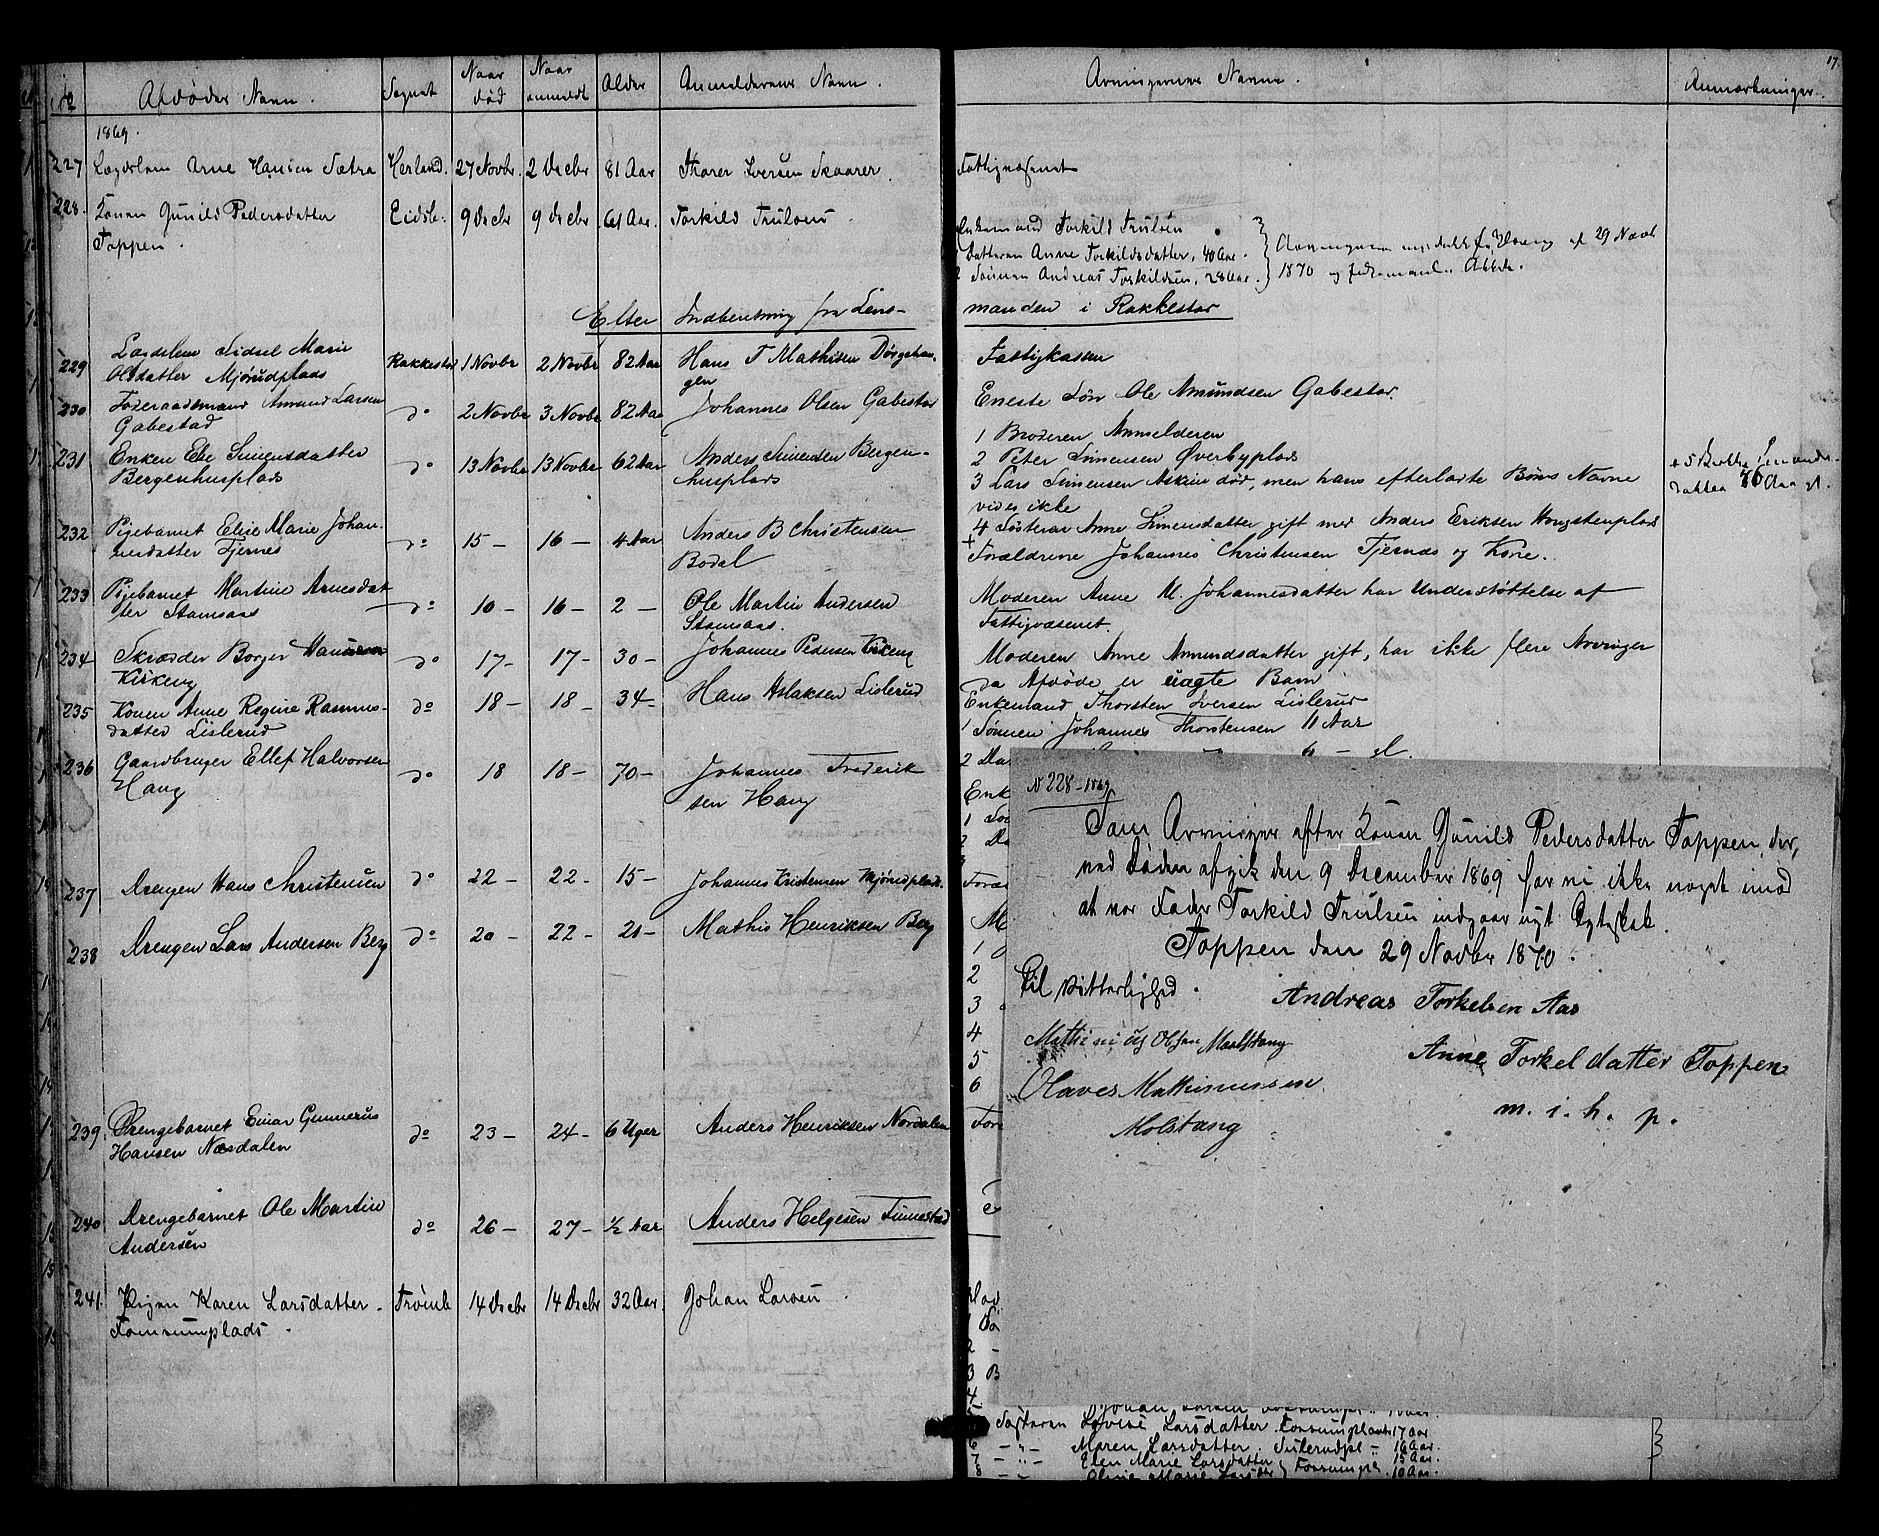 No Afdødes Navn. Sognet Naar død Naar anmeldt Alder Anmelderens Navn.
1869.
227 Lægdslem Arne Hansen Sætra Herland. 27 Novbr. 2 Decbr 81 Aar Thorer Iversen Skaarer.
228. Konen Gunild Pedersdatter Eidsb. 9 Decbr 9 Decbr 61 Aar. Torkild Trulsen.
Toppen.
Efter Indberetning fra Lens-
229 Lægdslem Sidsel Marie Rakkestad 1 Novbr 2 Novbr 82 Aar Hans T Mathisen
Olsdatter Mjørudplads gen
230 Føderaadsmand Amund Larsen do 2 Novbr 3 Novbr 82 Aar Johannes Olsen Gabestad
Gabestad
231 Enken Ebe Simensdatter do 13 Novbr 13 Novbr 62 Aar Anders Simensen Bergen-
Bergenhusplads husplads
232 Pigebarnet Elise Marie Johan- do 15 - 16 - 4 Aar Anders B Christensen
nesdatter Tjernes Bodal
233 Pigebarnet Martine Arnesdat- do 10 - 16 - 2 - Ole Martin Andersen
ter Stamsaas Stamsaas.
234 Skræder Borger Hansen do 17 - 17 - 30 - Johannes Pedersen Kirkeng
Kirkeng
235 Konen Anne Regine Rasmus- do 18 - 18 34 - Hans Aslaksen Lislerud
datter Lislerud
236 Gaardbruger Ellef Halvorsen do 18 18 - 70 - Johannes Frederik
Haug sen Haug
237 Drengen Hans Christensen do 22 - 22 - 15 - Johannes Kristensen Mjørudplads.
238 Drengen Lars Andersen Berg do 20 - 22 - 21 - Mathis Henriksen Berg
239. Drengebarnet Einar Gunnerius do 23 - 24 - 6 Uger Anders Henriksen Nordalen
Hansen Næsdalen
240 Drengebarnet Ole Martin do 26 - 27 - 1/2 Aar Anders Helgesen Finnestad
Andersen
241. Pigen Karen Larsdatter. Trømb 14 Decbr 14 Decbr 32 Aar. Johan Larsen.
Fonsrumplads.
17.
Arvingernes Navne. Anmærkninger.
Fattigvæsenet
Enkemand Torkild Trulsen
Datteren Anne Torkildsdatter, 40 Aar.
2 Sønnen Andreas Torkildsen, 28 Aar.
Arvingerne af 29 Novbr
1870 og
manden i Rakkestad
Fattigkassen
Eneste Søn Ole Amundsen Gabestad.
1 Broderen Anmelderen
2 Peter Simensen Øverbyplads
3 Lars Simensen Askim død, men hans efterladte Børns Navne
vides ikke
4 Søsteren Anne Simensdatter gift med Anders Eriksen Hougstenplads
+ 5 Berthe Simens-
datter 70 Aar gl.
Forældrene Johannes Christensen Tjernes og Kone.
Moderen Anne M. Johannesdatter har Understøttelse af
Fattigvæsenet.
Moderen Anne Amundsdatter gift, har ikke flere Arvinger
da Afdøde er uægte Barn
Enkemand Thorsten Iversen Lislerud
1 Sønnen Johannes Thorstensen 11 Aar
2 Da 6 - gl.
Enk
1 Søn
2 Da
Foræ
M
1
2
3
4
5
6
For
N 228 - 1869
Som Arvinger efter Konen Gunild Pedersdatter Toppen, der,
ved Døden afgik den 9 December 1869 har vi ikke noget imod
at vor Fader Torkild Trulsen indgaar nyt Egteskab.
Toppen den 29 Novbr 1870.
Til Vitterlighed.
Andreas Torkelsen Aas
Mathinius Olsen Molstang
Anne Torkeldatter Toppen
Olaves Mathinussen
m. i. h. p.
Molstang
2 -
3 B
4
5 Søsteren Lovise Larsdatter Fonsrumplads 17 Aar
6 - " - Maren Larsdatter. - 16 Aar.
7 - " - Elen Marie Larsdatter, Fonsrumpl. 15 Aar.
8 - - Oline Marie Larsdr 10 Aar.